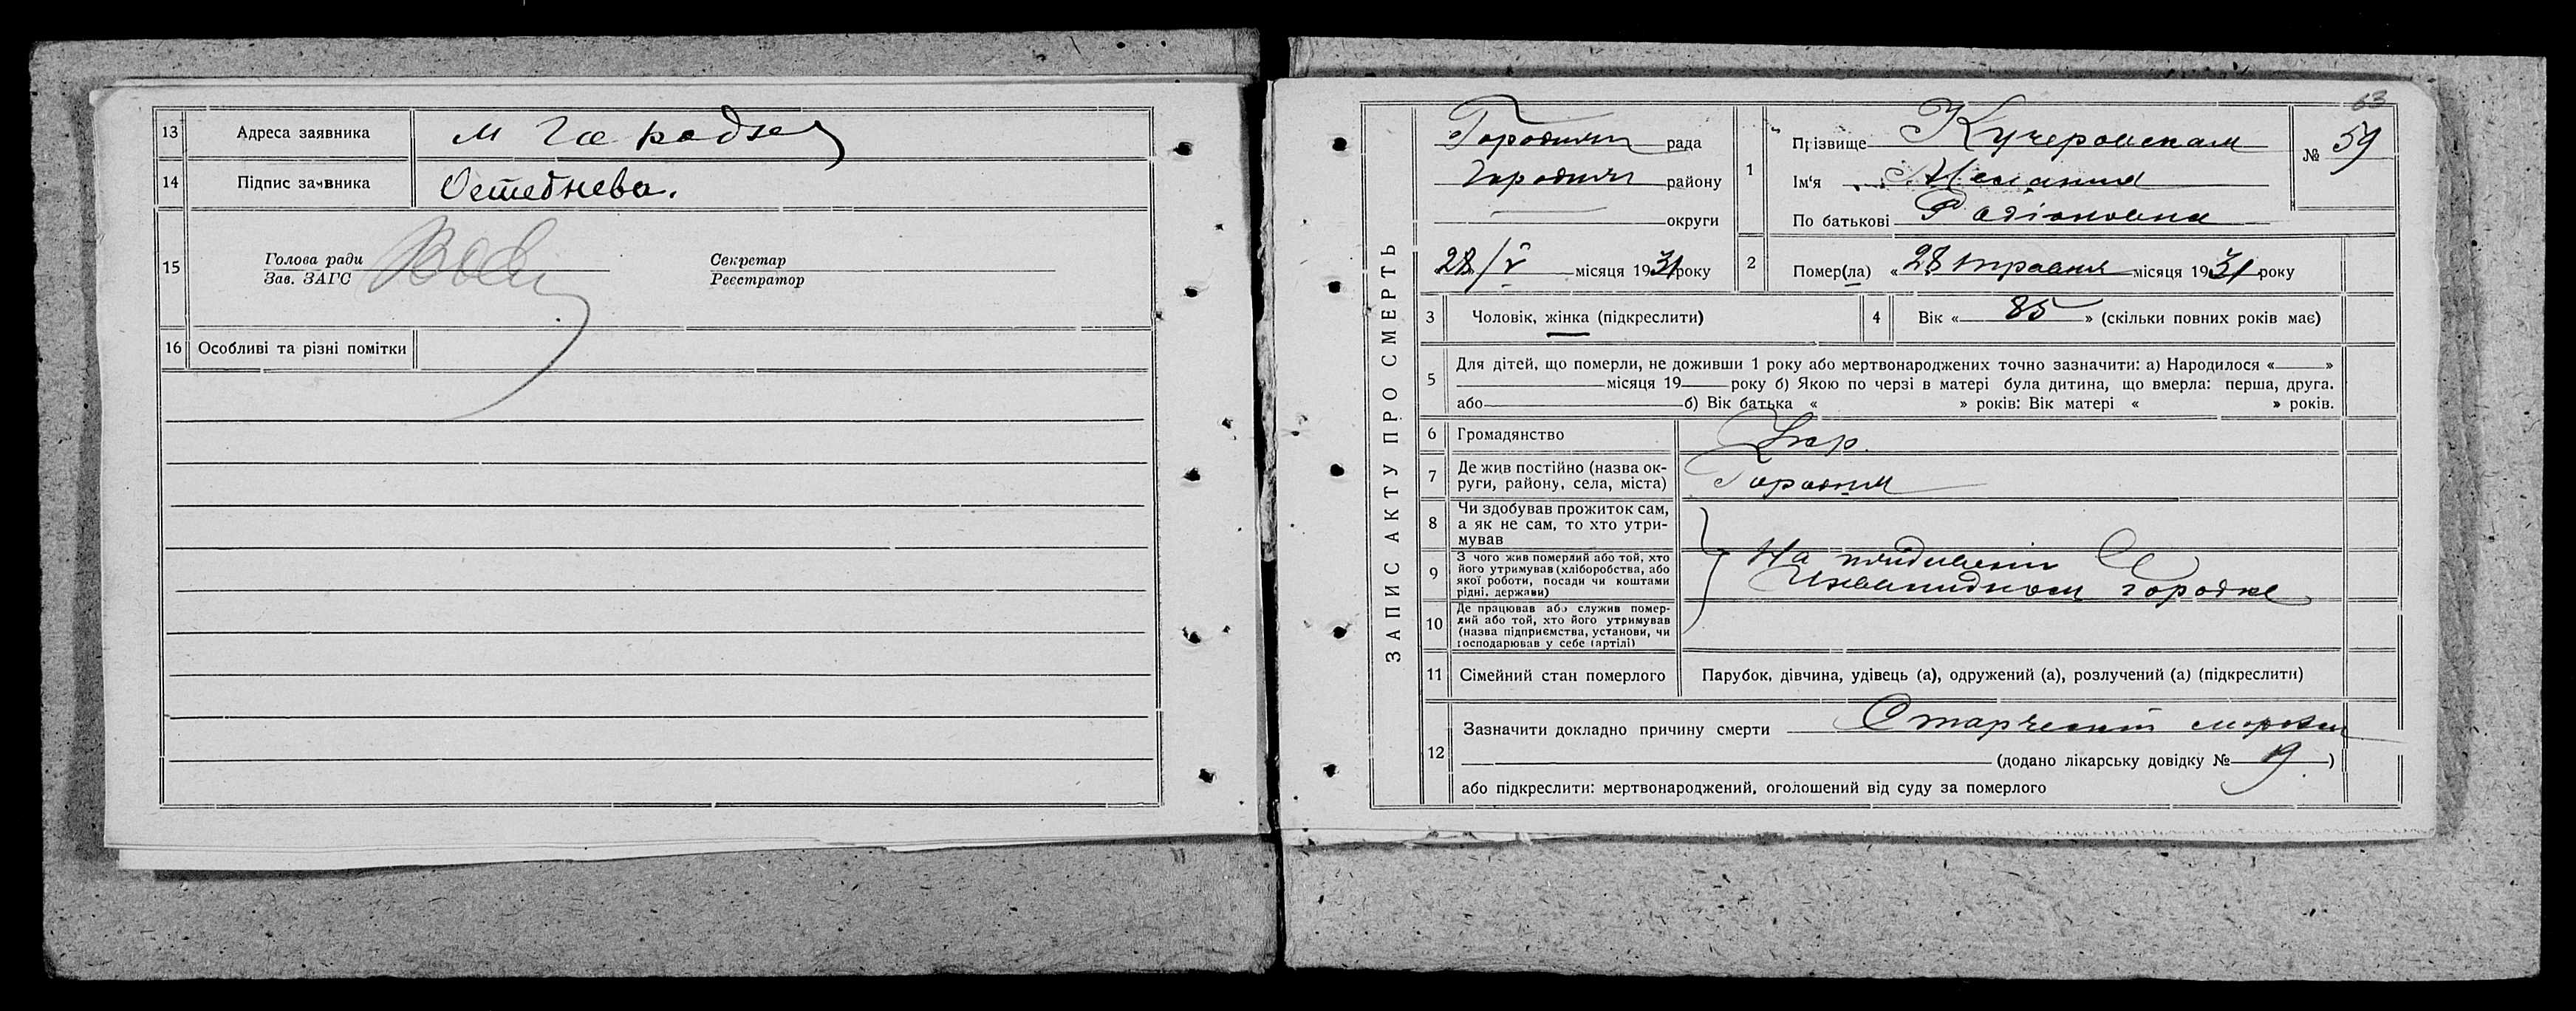 13 Адреса заявника м Городня
14 Підпис заявника Остебнева.
15 Голова ради
Зав. ЗАГС
Секретар
Реєстратор
16 Особливі та різні помітки
63
ЗАПИС АКТУ ПРО СМЕРТЬ
Городнян рада
Городнян району
округи
28/V місяця 1931 року
1 Прізвище Кучеровская
Ім'я Мелания
По батькові Радіоновна
№ 59
2 Помер(ла) « 28 травня місяця 1931 року
3 Чоловік, жінка (підкреслити)
4 Вік « 85 » (скільки повних років має)
5 Для дітей, що померли, не доживши 1 року або мертвонароджених точно зазначити: а) Народилося « »
місяця 19 року б) Якою по черзі в матері була дитина, що вмерла: перша, друга.
або б) Вік батька « » років: Вік матері « » років.
6 Громадянство Укр.
7 Де жив постійно (назва ок-
руги, району, села, міста) Городня
8 Чи здобував прожиток сам,
а як не сам, то хто утри-
мував
9 З чого жив померлий або той, хто
його утримував (хліборобства, або
якої роботи, посади чи коштами
рідні, держави)
На
Инвалидном городке
10 Де працював або служив помер-
лий або той, хто його утримував
(назва підприємства, установи, чи
господарював у себе (артілі)
11 Сімейний стан померлого Парубок, дівчина, удівець (а), одружений (а), розлучений (а) (підкреслити)
12 Зазначити докладно причину смерти Старческий
(додано лікарську довідку № 19 )
або підкреслити: мертвонароджений, оголошений від суду за померлого